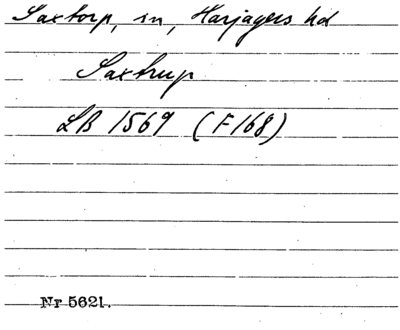 Saxtorp, sn, Harjagers hd
Saxtrup
LB 1569 (F168)
Nr 5621.